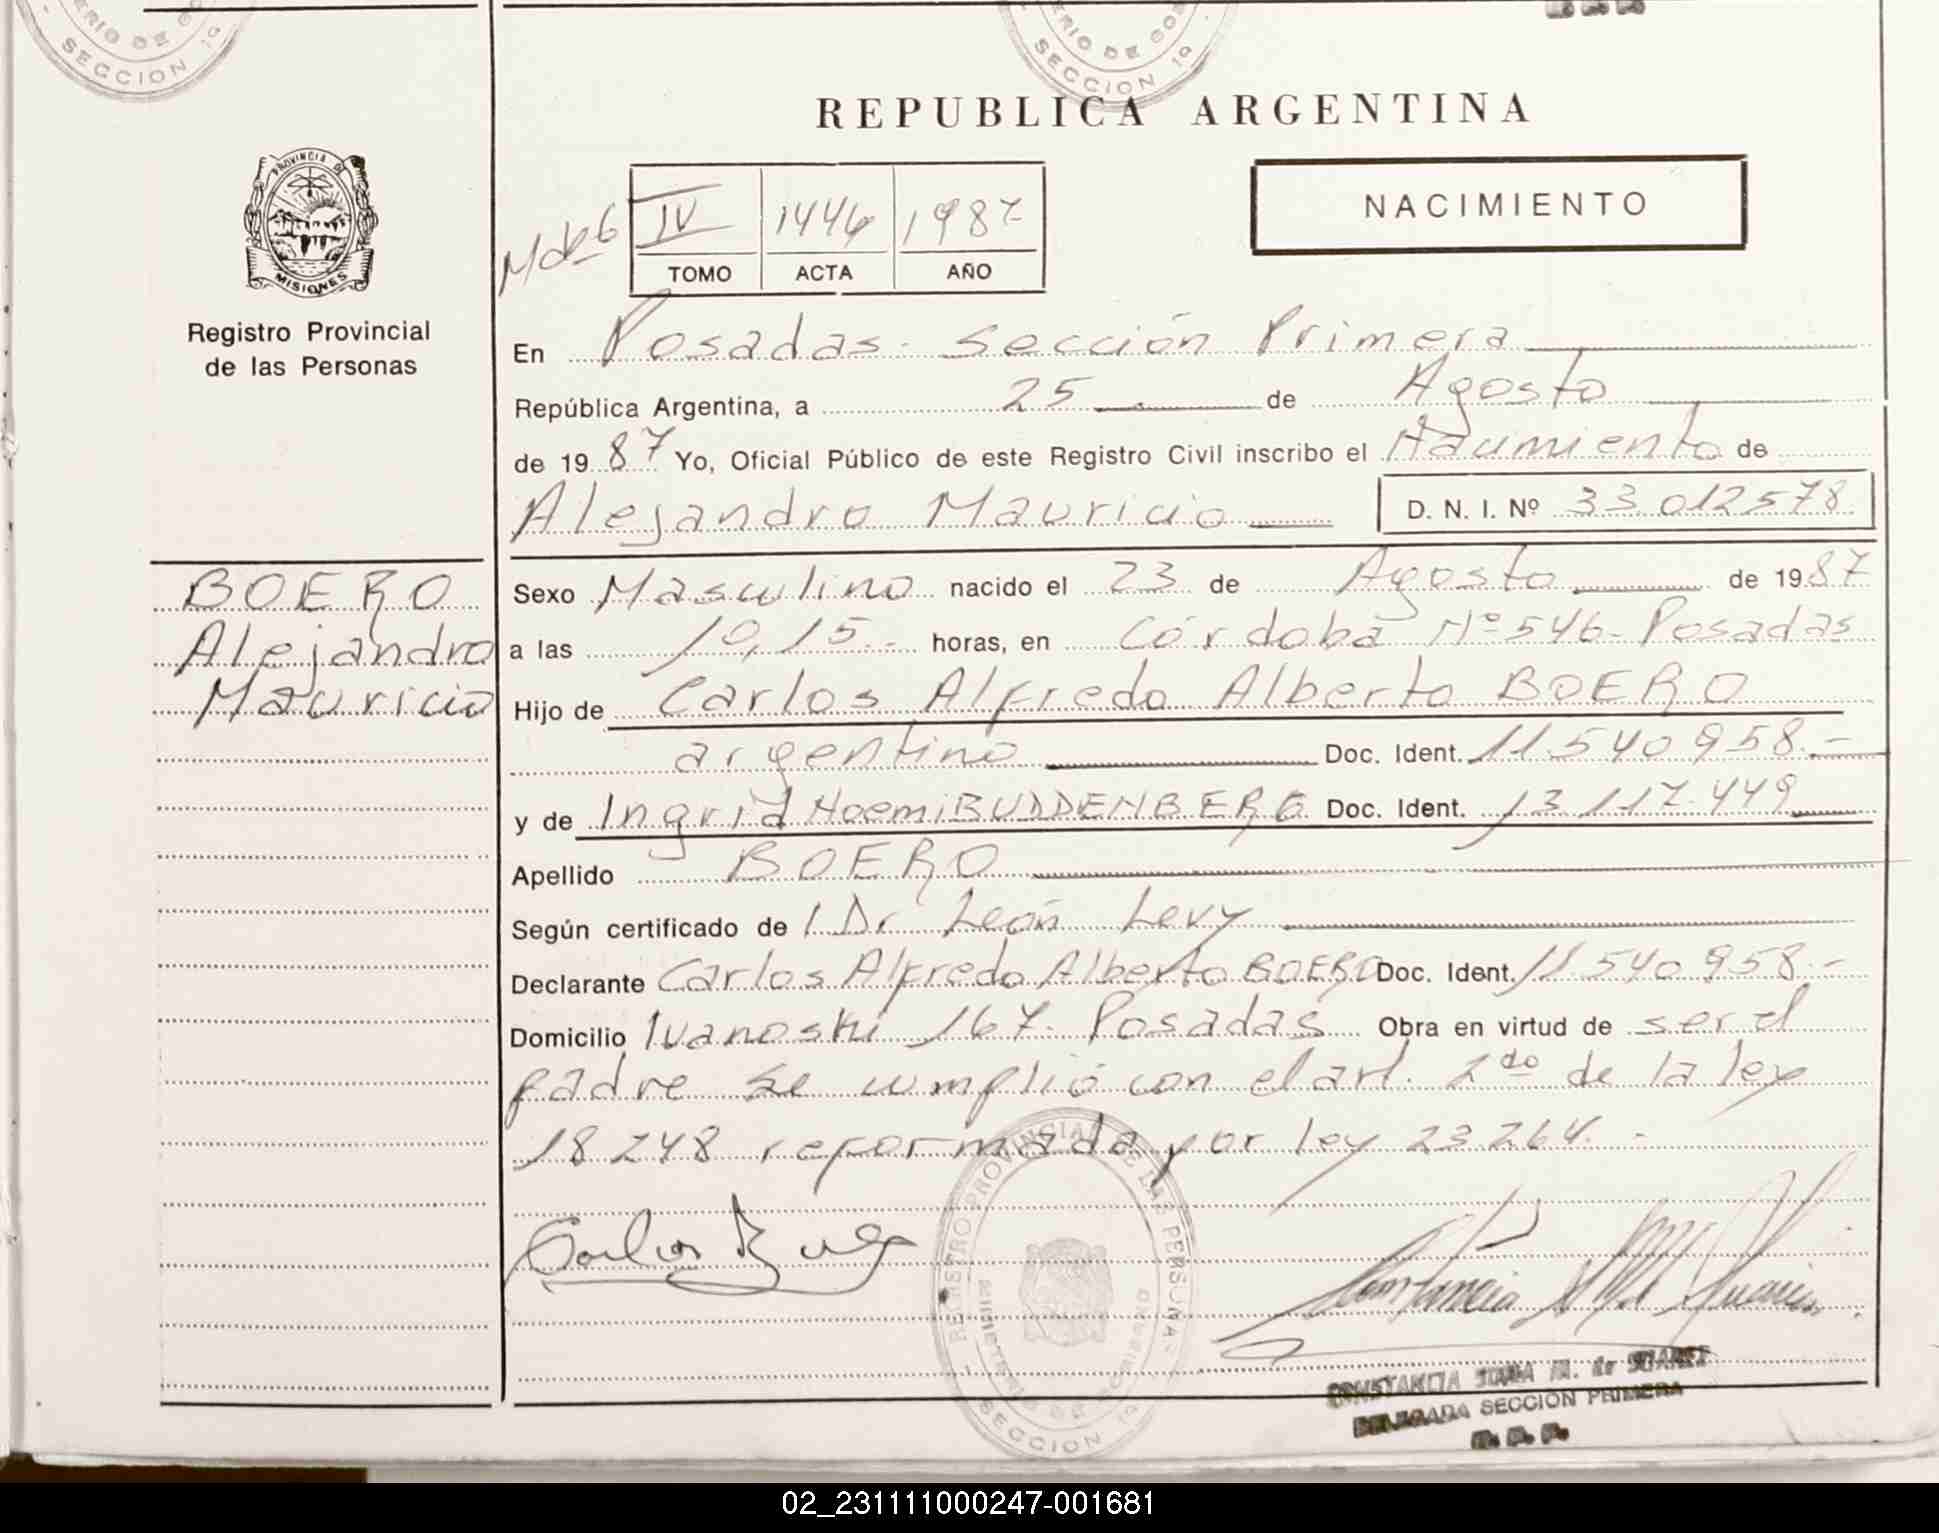 ERIO DE GO
SECCION 1a
ERIO DE GO
SECCION 1a
REPUBLICA ARGENTINA
PROVINCIA DE
MISIONES
Registro Provincial
de las Personas
IV 1446 1987
TOMO ACTA AÑO
NACIMIENTO
En Posadas - Sección Primera
República Argentina, a 25 de Agosto
de 1987 Yo, Oficial Público de este Registro Civil inscribo el Nacimiento de
Alejandro Mauricio D. N. I. Nº 33.012578.
BOERO
Alejandro
Mauricio
Sexo Masculino nacido el 23 de Agosto de 1987
a las 10,15.- horas, en Córdoba Nº 546 - Posadas
Hijo de Carlos Alfredo Alberto BOERO
argentino Doc. Ident. 11.540.958.-
y de Ingrid Noemi BUDDENBERG Doc. Ident. 13.117.449
Apellido BOERO
Según certificado de Dr León Levy
Declarante Carlos Alfredo Alberto BOERO Doc. Ident. 11.540.958.-
Domicilio Ivanoski 167- Posadas Obra en virtud de ser el
padre Se cumplió con el art. 2do de la ley
18.248 reformada por ley 23.264.-
REGISTRO PROVINCIAL DE LAS PERSONAS
MINISTERIO DE GOBIERNO
SECCION 1a
CONSTANCIA M. de SUAREZ
DELEGADA SECCION PRIMERA
R. P. P.
02_231111000247-001681